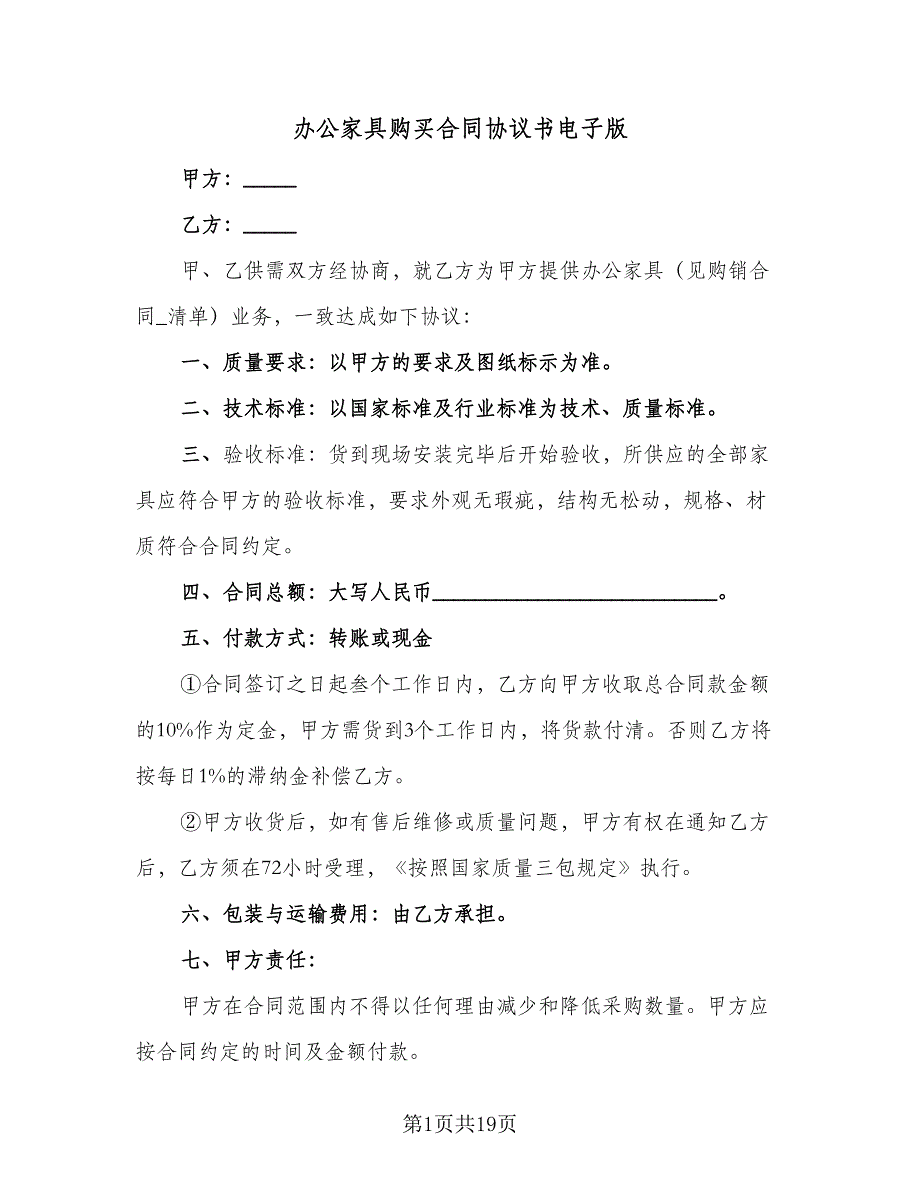 办公家具购买合同协议书电子版
甲方：_____
乙方：_____
甲、乙供需双方经协商，就乙方为甲方提供办公家具（见购销合
同_清单）业务，一致达成如下协议：
一、质量要求：以甲方的要求及图纸标示为准。
二、技术标准：以国家标准及行业标准为技术、质量标准。
三、验收标准：货到现场安装完毕后开始验收，所供应的全部家
具应符合甲方的验收标准，要求外观无瑕疵，结构无松动，规格、材
质符合合同约定。
四、合同总额：大写人民币___________________________。
五、付款方式：转账或现金
①合同签订之日起叁个工作日内，乙方向甲方收取总合同款金额
的10%作为定金，甲方需货到3个工作日内，将货款付清。否则乙方将
按每日1%的滞纳金补偿乙方。
②甲方收货后，如有售后维修或质量问题，甲方有权在通知乙方
后，乙方须在72小时受理，《按照国家质量三包规定》执行。
六、包装与运输费用：由乙方承担。
七、甲方责任：
甲方在合同范围内不得以任何理由减少和降低采购数量。甲方应
按合同约定的时间及金额付款。
第1页共19页